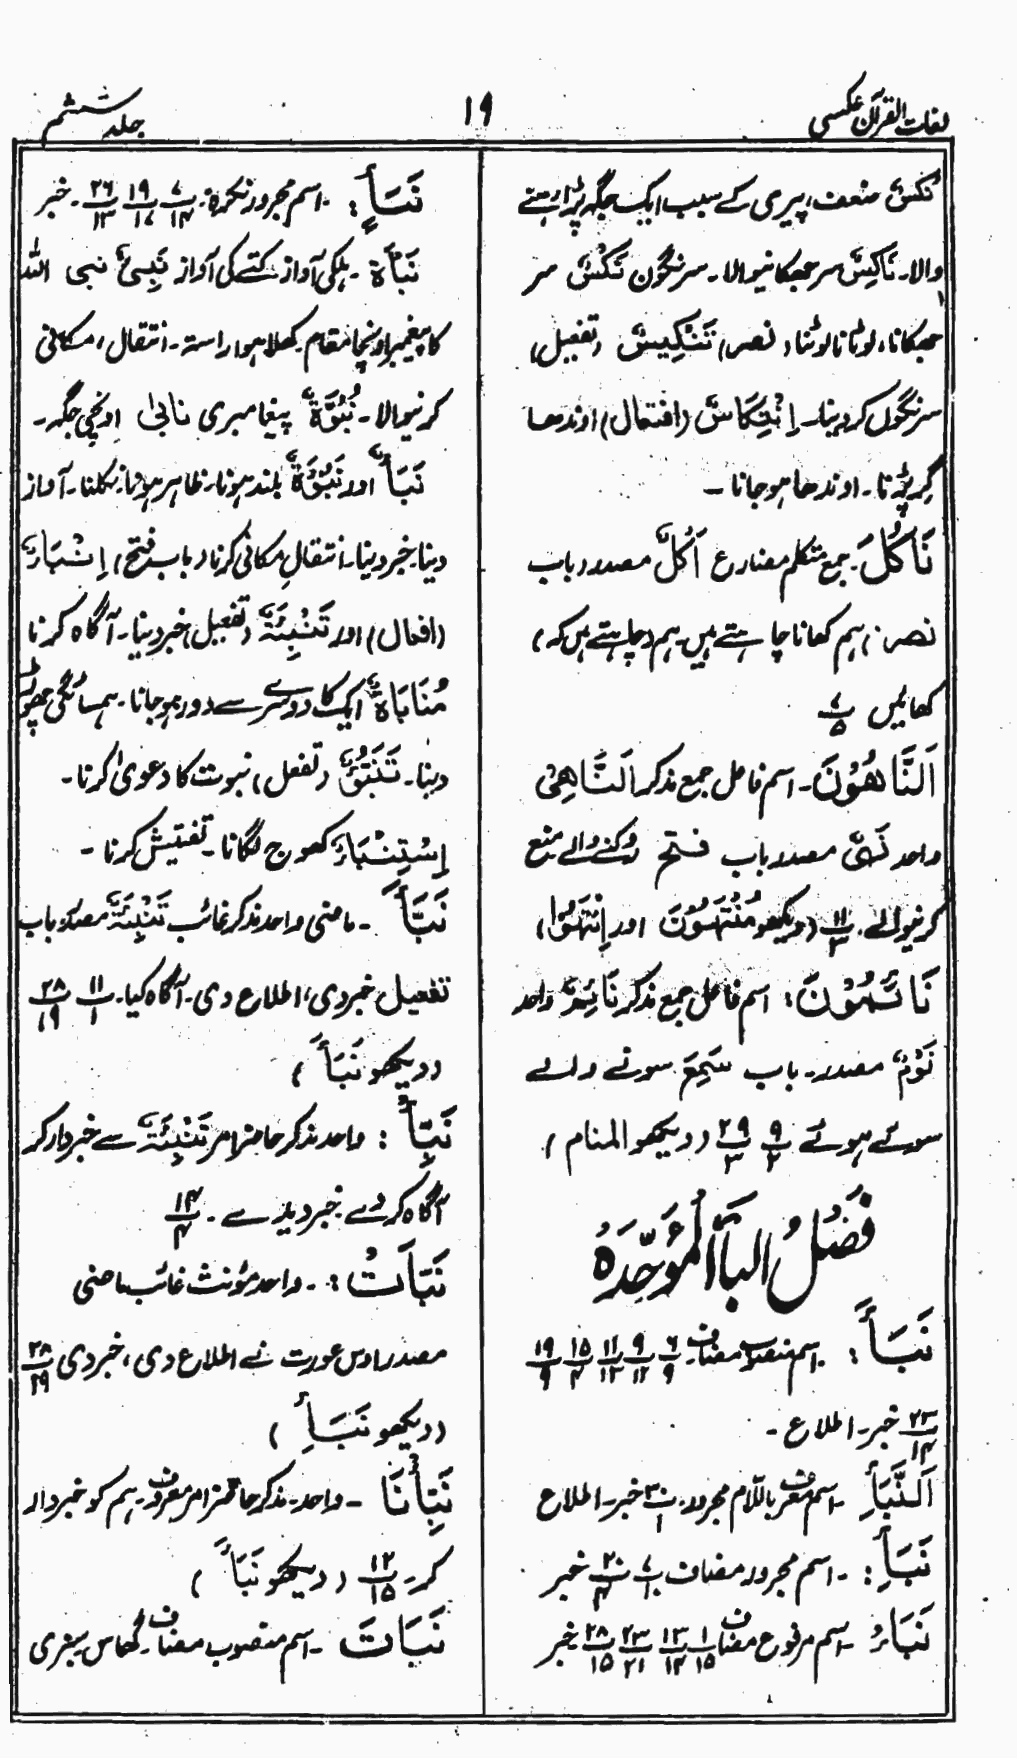 لغات القرآن عکسی
۱۹
جلد ششم
نُکْسٌ ضعف، پیری کے سبب ایک جگہ پڑا رہنے
والا۔ نَاکِسٌ سر جھکانیوالا۔ سرنگون نَکْسٌ سر
جھکانا، لوٹانا لوٹنا، (نصر) تَنْکِیسٌ (تفعیل)
سرنگوں کر دینا۔ اِنْتِکَاسٌ (افتعال) اوندھا
گر پڑنا۔ اوندھا ہو جانا ۔
نَاْکُلَ۔ جمع متکلم مضارع اَکْلٌ مصدر (باب
نصر) ہم کھانا چاہتے ہیں۔ ہم (چاہتے ہیں کہ)
کھائیں ۷/۵
اَلنَّاهُوْنَ۔ اسم فاعل جمع مذکر اَلنَّاهِیْ
واحد نَهْیٌ مصدر باب فتح روکنے والے منع
کرنیوالے۔ ۱۱/۳ (دیکھو مُنْتَهُوْنَ اور اِنْتَهَوْا)
نَائِمُوْنَ: اسم فاعل جمع مذکر نَائِمٌ واحد
نَوْمٌ مصدر۔ باب سَمِعَ سونے والے
سوئے ہوئے ۹/۲ ۲۹/۳ (دیکھو المنام)
فَصْلُ الْبَاءِ الْمُوَحَّدَةِ
نَبَأَ: ۔ اسم منصوب مضاف۔ ۶/۹ ۹/۱۲ ۱۱/۱۳ ۱۵/۴ ۱۹/۹
۲۳/۱۴ خبر۔ اطلاع ۔
اَلنَّبَأِ ۔ اسم معرف باللام مجرور۔ ۳۰/۱ خبر۔ اطلاع
نَبَأِ: ۔ اسم مجرور مضاف ۷/۱۰ ۲۰/۴ خبر
نَبَاءُ ۔ اسم مرفوع مضاف ۱/۱۵ ۱۳/۱۴ ۲۳/۲۱ ۲۸/۱۵ خبر
نَبَأٍ: ۔ اسم مجرور نکرہ۔ ۷/۱۴ ۱۹/۱۷ ۲۶/۱۳ ۔ خبر
نَبْأَة ۔ ہلکی آواز کتے کی آواز نَبِیٌّ نبی اللہ
کا پیغمبر اونچا مقام کھلا ہوا راستہ۔ انتقال مکانی
کرنیوالا۔ نُبُوَّةٌ پیغامبری نابیٰ اونچی جگہ۔
نَبَأٌ اور نَبُوْءَةٌ بلند ہونا۔ ظاہر ہونا۔ نکلنا۔ آواز
دینا۔ خبر دینا۔ انتقالِ مکانی کرنا (باب فتح) اِنْبَاءٌ
(افعال) اور تَنْبِئَةٌ (تفعیل) خبر دینا۔ آگاہ کرنا
مُنَابَاةٌ ایک کا دوسرے سے دور ہو جانا۔ ہمسائگی چھوڑ
دینا۔ تَنَبُّئٌ (تفعل) نبوت کا دعویٰ کرنا۔
اِسْتِنْبَاءٌ کھوج لگانا۔ تفتیش کرنا ۔
نَبَّأَ ۔ ماضی واحد مذکر غائب تَنْبِئَةٌ مصدر باب
تفعیل خبر دی، اطلاع دی۔ آگاہ کیا۔ ۱۱/۱ ۲۸/۱۹
(دیکھو نَبَأَ)
نَبِّأْ: واحد مذکر حاضر امر تَنْبِئَةٌ سے خبردار کر
آگاہ کر دے خبر دیدے ۔ ۱۴/۴
نَبَّأَتْ: ۔ واحد مؤنث غائب ماضی
مصدر اوس عورت نے اطلاع دی، خبر دی ۲۸/۱۹
(دیکھو نَبَأَ)
نَبِّأْنَا ۔ واحد۔ مذکر حاضر امر معروف۔ ہم کو خبردار
کر۔ ۱۲/۱۵ (دیکھو نَبَأَ)
نَبَاتَ ۔ اسم منصوب مضاف۔ گھاس سبزی